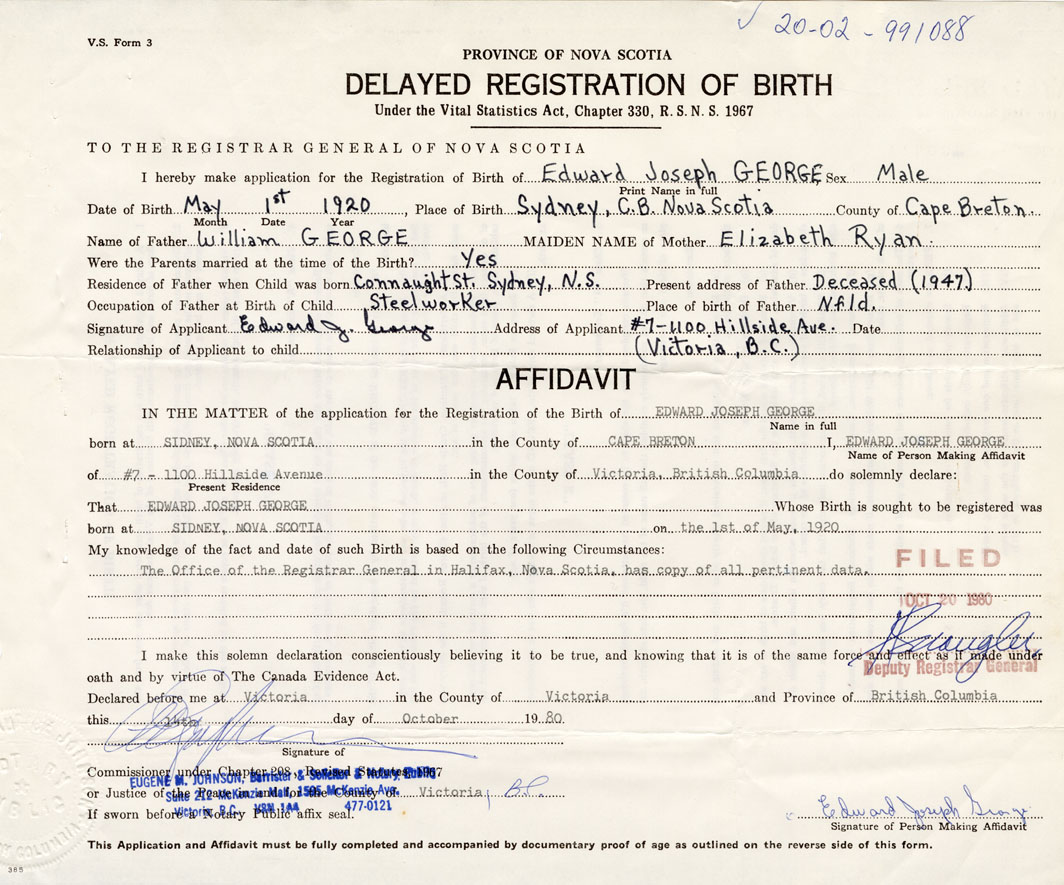 20-02-991088
V.S. Form 3
PROVINCE OF NOVA SCOTIA
DELAYED REGISTRATION OF BIRTH
Under the Vital Statistics Act, Chapter 330, R. S. N. S. 1967
TO THE REGISTRAR GENERAL OF NOVA SCOTIA
I hereby make application for the Registration of Birth of Edward Joseph GEORGE Sex Male
Print Name in full
Date of Birth May 1st 1920, Place of Birth Sydney, C.B. Nova Scotia County of Cape Breton
Month Date Year
Name of Father William GEORGE MAIDEN NAME of Mother Elizabeth Ryan
Were the Parents married at the time of the Birth? Yes
Residence of Father when Child was born Connaught St. Sydney, N.S. Present address of Father Deceased (1947)
Occupation of Father at Birth of Child Steelworker Place of birth of Father Nfld.
Signature of Applicant Edward J. George Address of Applicant #7-1100 Hillside Ave. Date
Relationship of Applicant to child (Victoria, B.C.)
AFFIDAVIT
IN THE MATTER of the application for the Registration of the Birth of EDWARD JOSEPH GEORGE
Name in full
born at SIDNEY, NOVA SCOTIA in the County of CAPE BRETON I, EDWARD JOSEPH GEORGE
Name of Person Making Affidavit
of #7 - 1100 Hillside Avenue in the County of Victoria, British Columbia do solemnly declare:
Present Residence
That EDWARD JOSEPH GEORGE Whose Birth is sought to be registered was
born at SIDNEY, NOVA SCOTIA on the 1st of May, 1920
My knowledge of the fact and date of such Birth is based on the following Circumstances:
The Office of the Registrar General in Halifax, Nova Scotia, has copy of all pertinent data.
FILED
OCT 20 1980
I make this solemn declaration conscientiously believing it to be true, and knowing that it is of the same force and effect as if made under
Deputy Registrar General
oath and by virtue of The Canada Evidence Act.
Declared before me at Victoria in the County of Victoria and Province of British Columbia
this 14th day of October 1980
Signature of
Commissioner under Chapter 298, Revised Statutes 1967
EUGENE M. JOHNSON, Barrister & Solicitor & Notary Public
or Justice of the Peace in and for the County of Victoria, B.C.
Suite 212 McKenzie Mall, 1595 McKenzie Ave.
Victoria, B.C. V8N 1A4 477-0121
If sworn before a Notary Public affix seal.
Edward Joseph George
Signature of Person Making Affidavit
This Application and Affidavit must be fully completed and accompanied by documentary proof of age as outlined on the reverse side of this form.
385